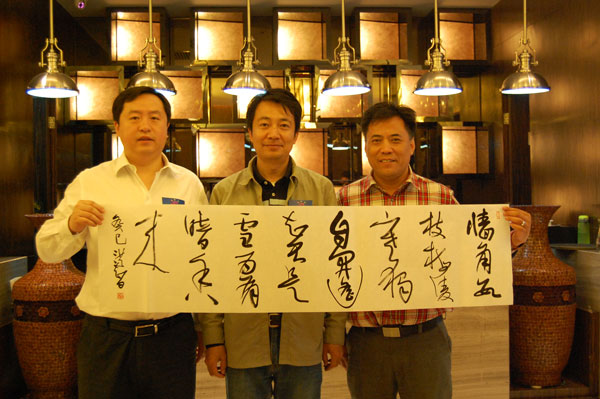 墙角数
枝梅凌
寒独
自开遥
知不是
雪为有
暗香
来
癸巳